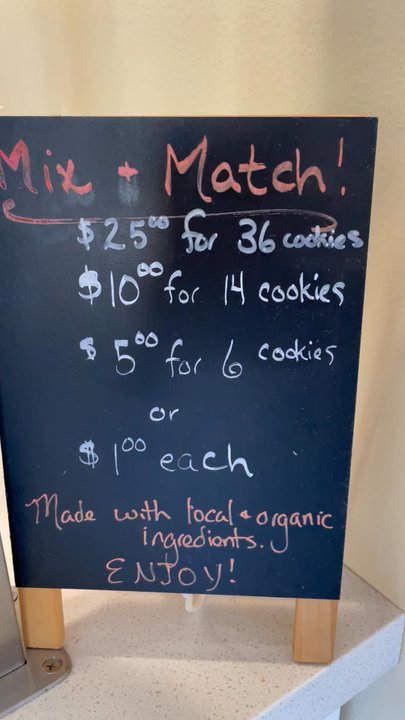 Mix + Match!
$25⁰⁰ for 36 cookies
$10⁰⁰ for 14 cookies
$5⁰⁰ for 6 cookies
or
$1⁰⁰ each
Made with local + organic
ingredients.
ENJOY!